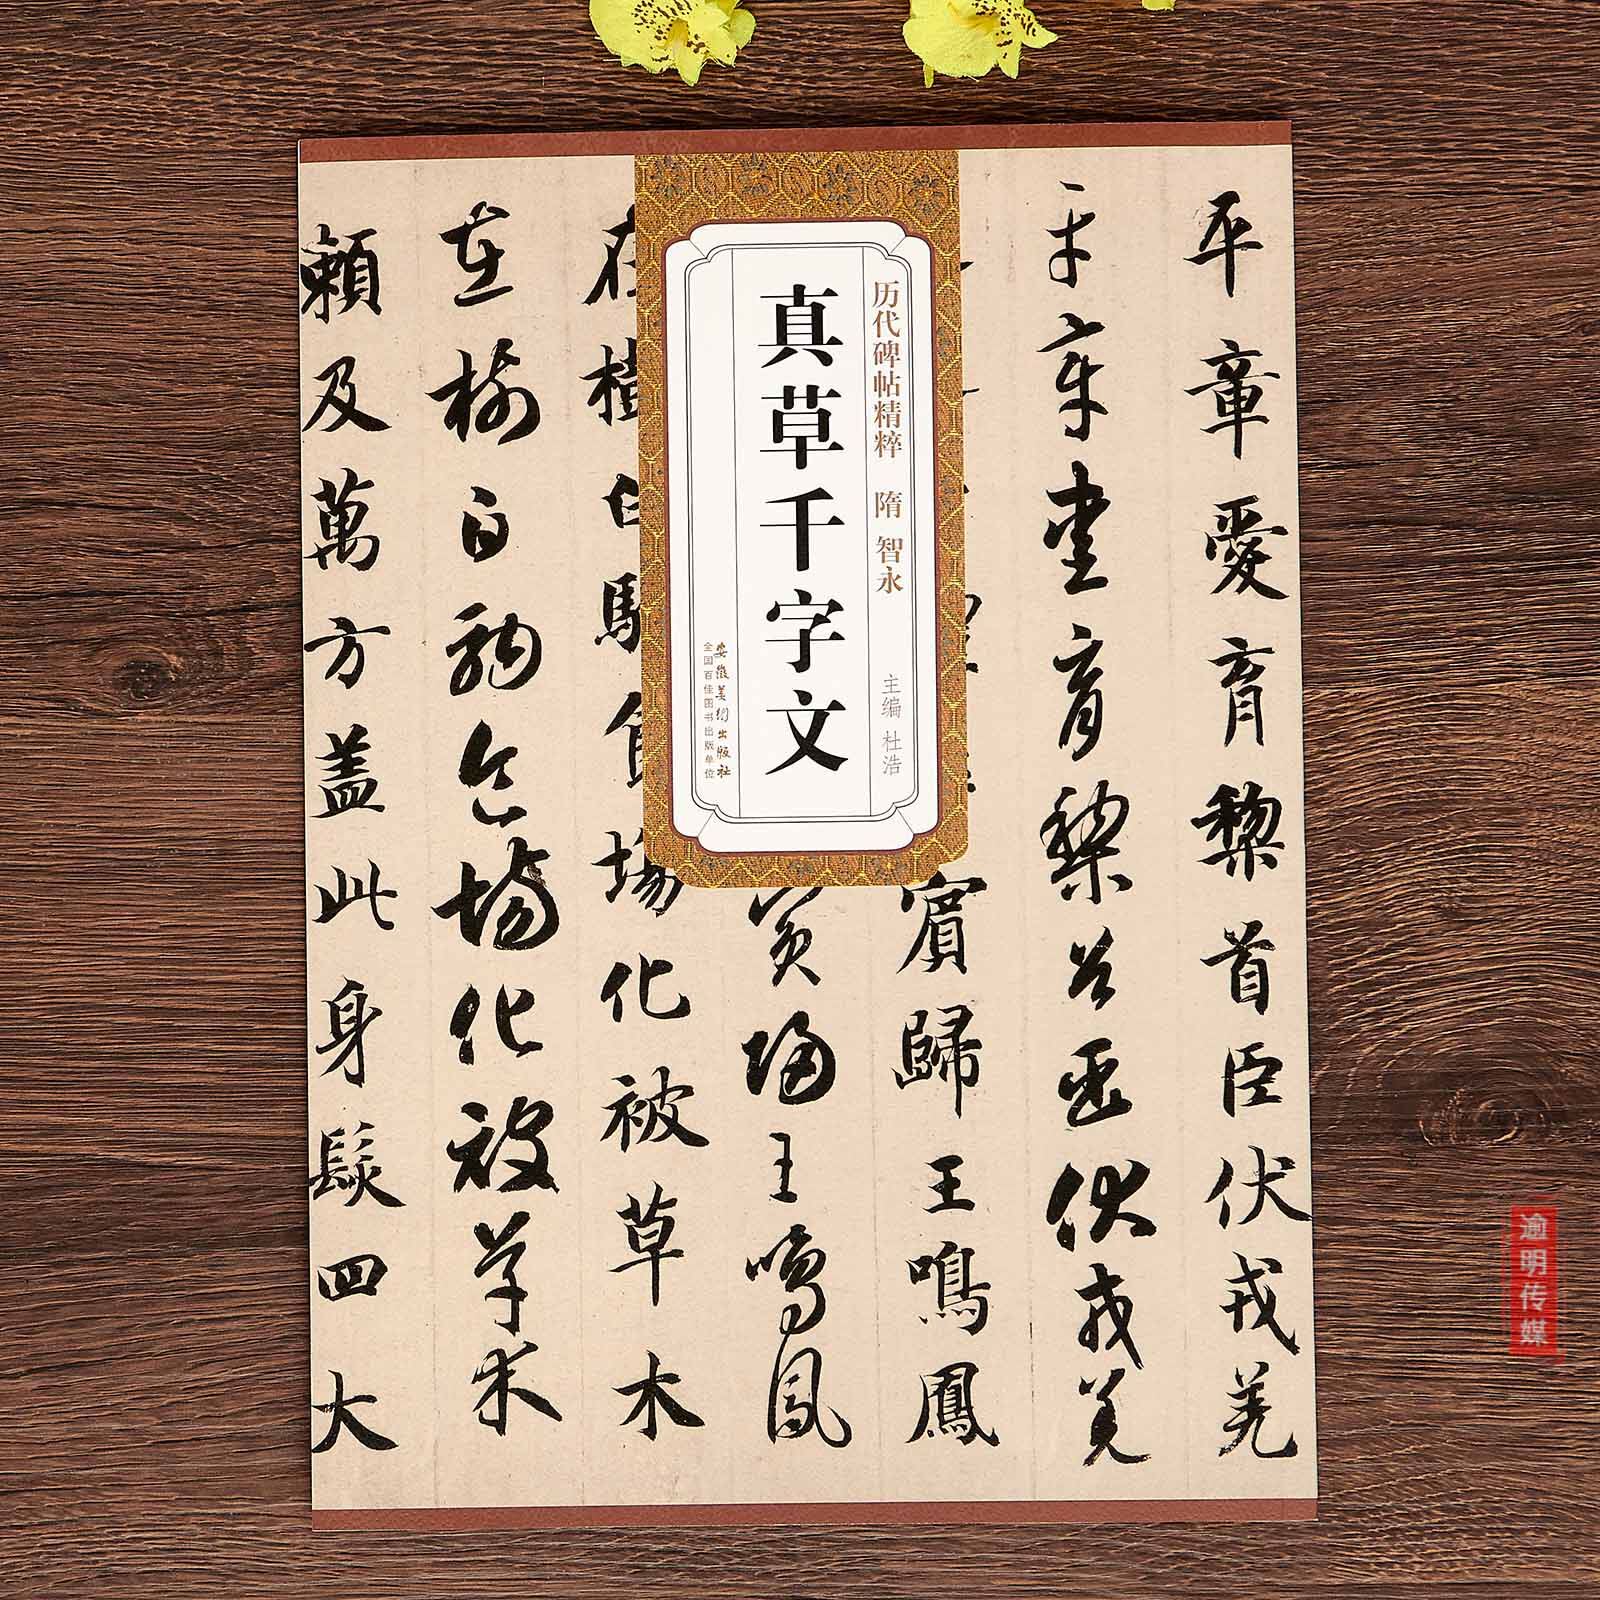 真草千字文
历代碑帖精粹 隋 智永
主编 杜浩
安徽美術出版社
全国百佳图书出版单位
平章愛育黎首臣伏戎羌
平章愛育黎首臣伏戎羌
賓歸王鳴鳳
賓歸王鳴鳳
在樹白駒食場化被草木
在樹白駒食場化被草木
賴及萬方蓋此身髮四大
逾明传媒